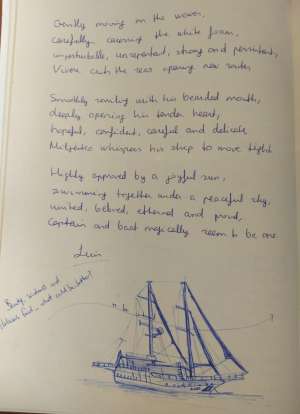 Gently moving on the waves,
Carefully caressing the white foam,
imperturbable, unrepentant, strong and persistent,
the seas opening new routes
Smoothly smiling with his bearded mouth,
deeply opening his tender heart,
hopeful, confident, careful and delicate
whispers his ship to move tight
Highly approved by a joyful sun,
swimming together under a peaceful sky,
united, beloved, ethereal and proud,
Captain and boat magically seem to be one.
what could be better?